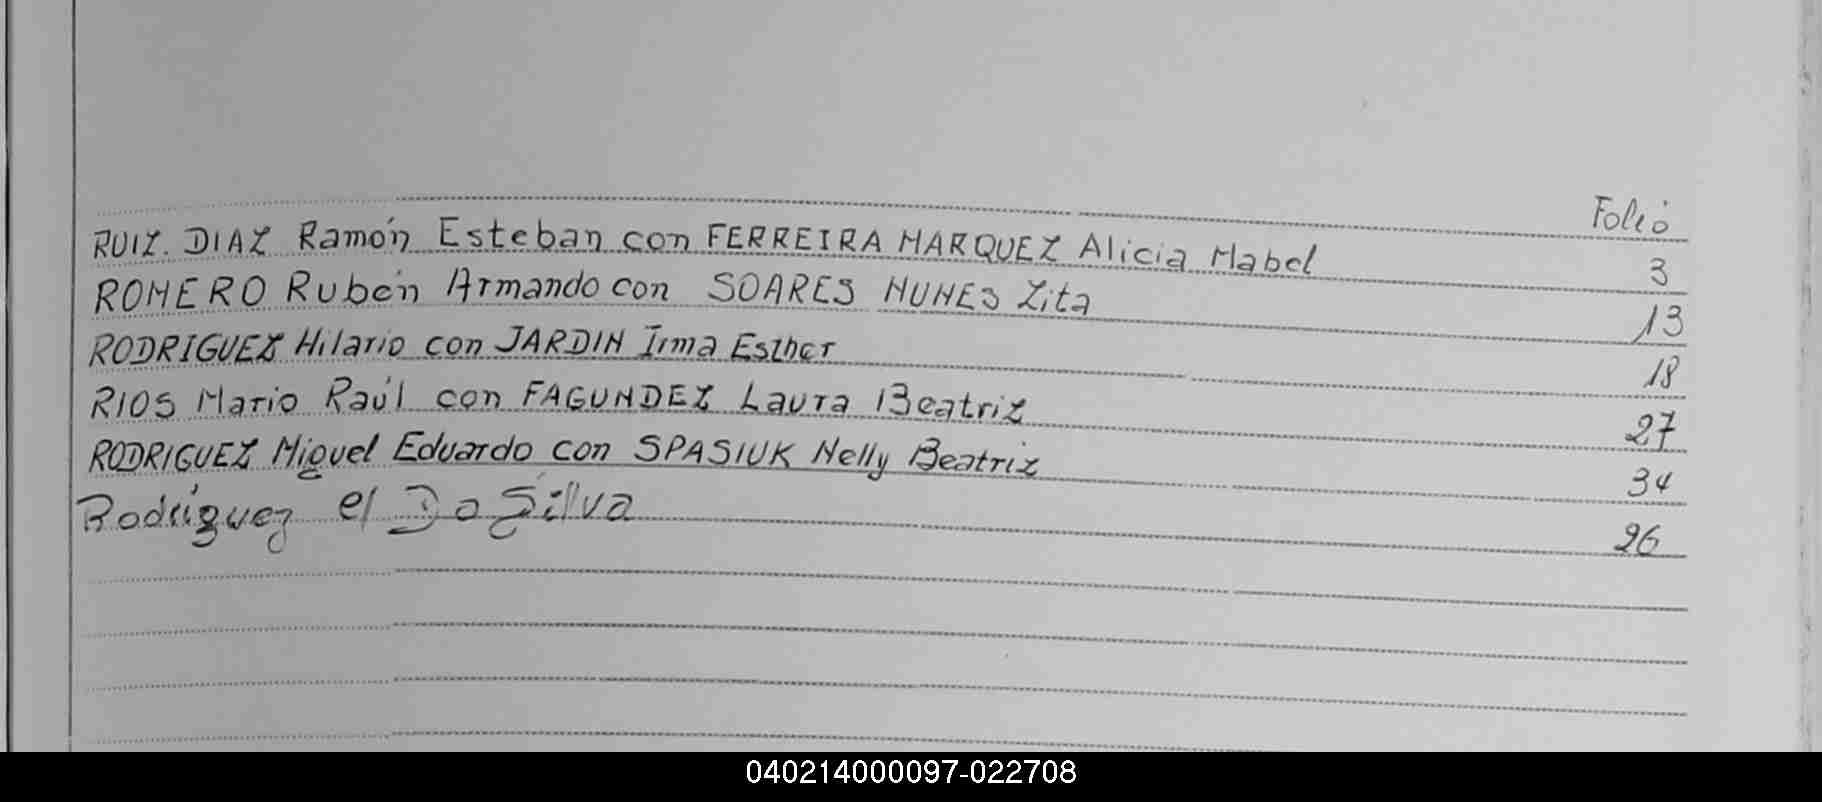 Folio
RUIZ. DIAZ Ramón Esteban con FERREIRA MARQUEZ Alicia Mabel 3
ROMERO Rubén Armando con SOARES NUNES Zita 13
RODRIGUEZ Hilario con JARDIN Irma Esther 18
RIOS Mario Raúl con FAGUNDEZ Laura Beatriz 27
RODRIGUEZ Miguel Eduardo con SPASIUK Nelly Beatriz 34
Rodríguez el Da Silva 26
040214000097-022708